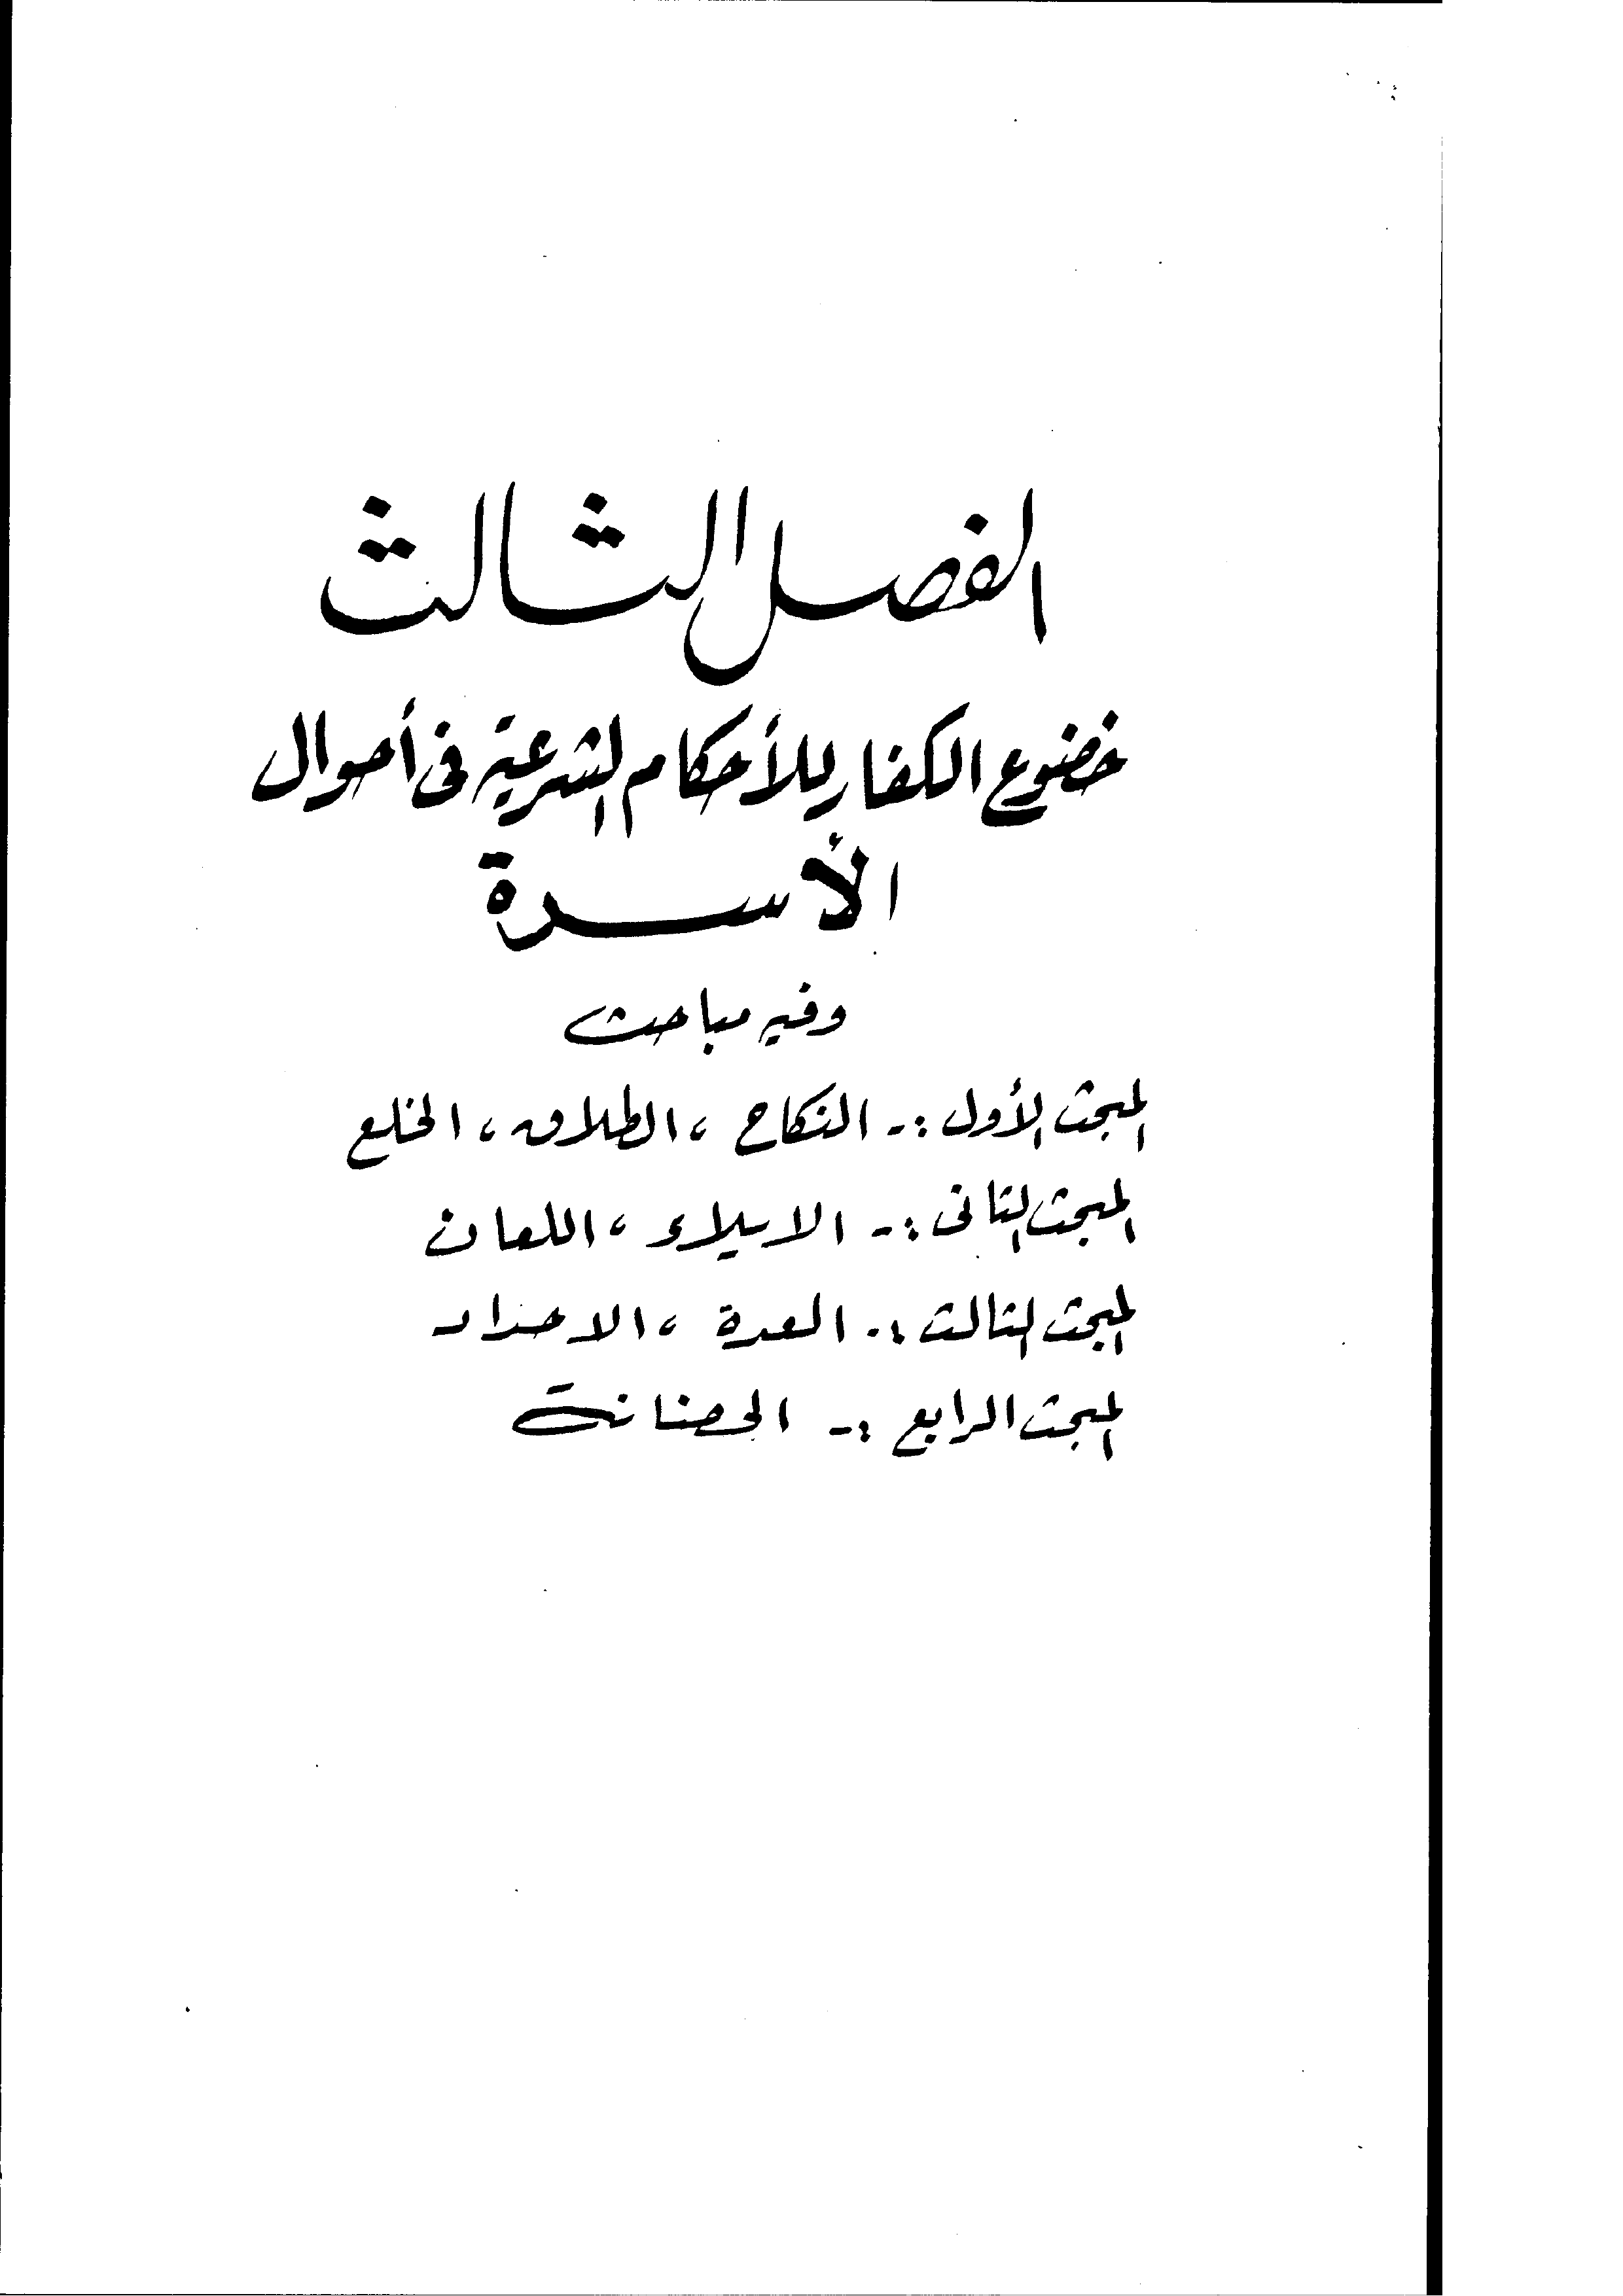 الفصل الثالث
خضوع الكفار للأحكام الشرعية فى أحوال
الأسرة
وفيه مباحث
المبحث الأول :- النكاح ، الطلاق ، الخلع
المبحث الثانى :- الايلاء ، اللعان
المبحث الثالث :- العدة ، الاحداد
المبحث الرابع :- الحضانة